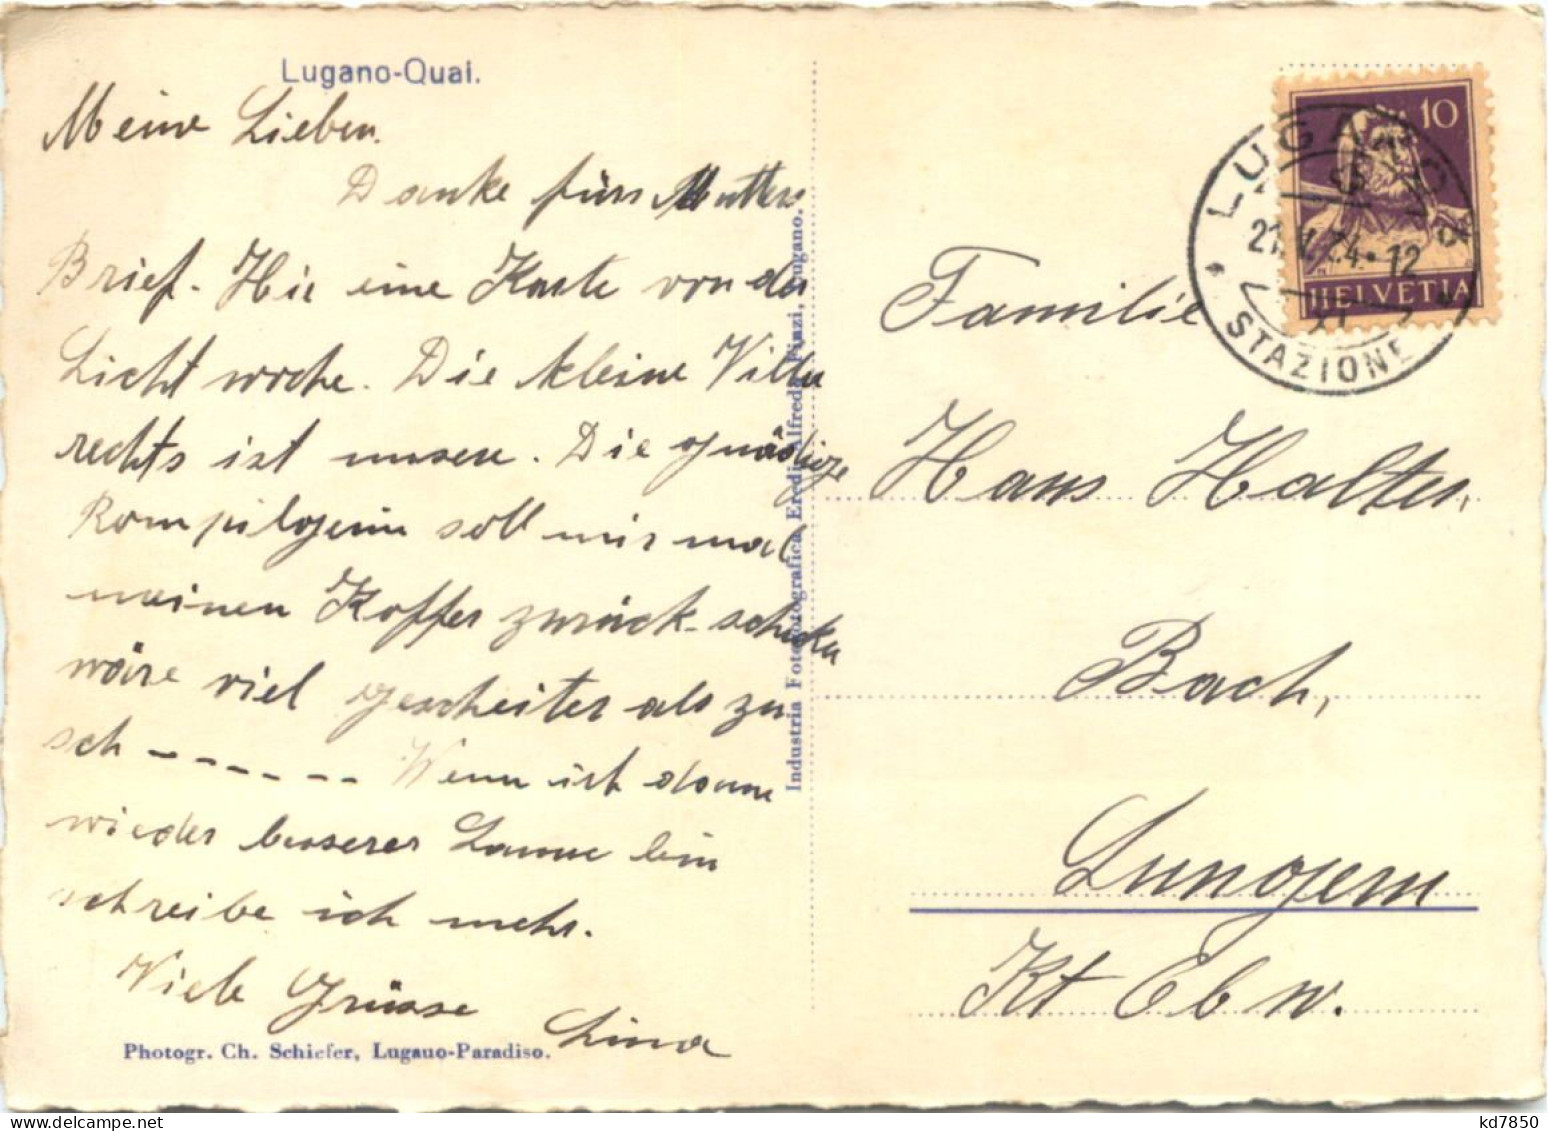 Lugano-Quai.
Meine Lieben.
Danke fürs Mutters
Brief. Hie eine Karte von der
Lichtwoche. Die kleine Villa
rechts ist unsere. Die gnädige
soll mir mal
meinen Koffer zurück schicken
wäre viel gescheiter als zu
sch - - - - - - Wenn ich dann
wieder besserer Laune bin
schreibe ich mehr.
Viele Grüsse
Lina
Photogr. Ch. Schiefer, Lugano-Paradiso.
Industria Fotografica, Eredi Alfredo Finzi, Lugano.
10
HELVETIA
LUGANO
21. V. 24 - 12
STAZIONE
Familie
Hans Halter,
Bach,
Lungern
Kt Obw.
kd7850